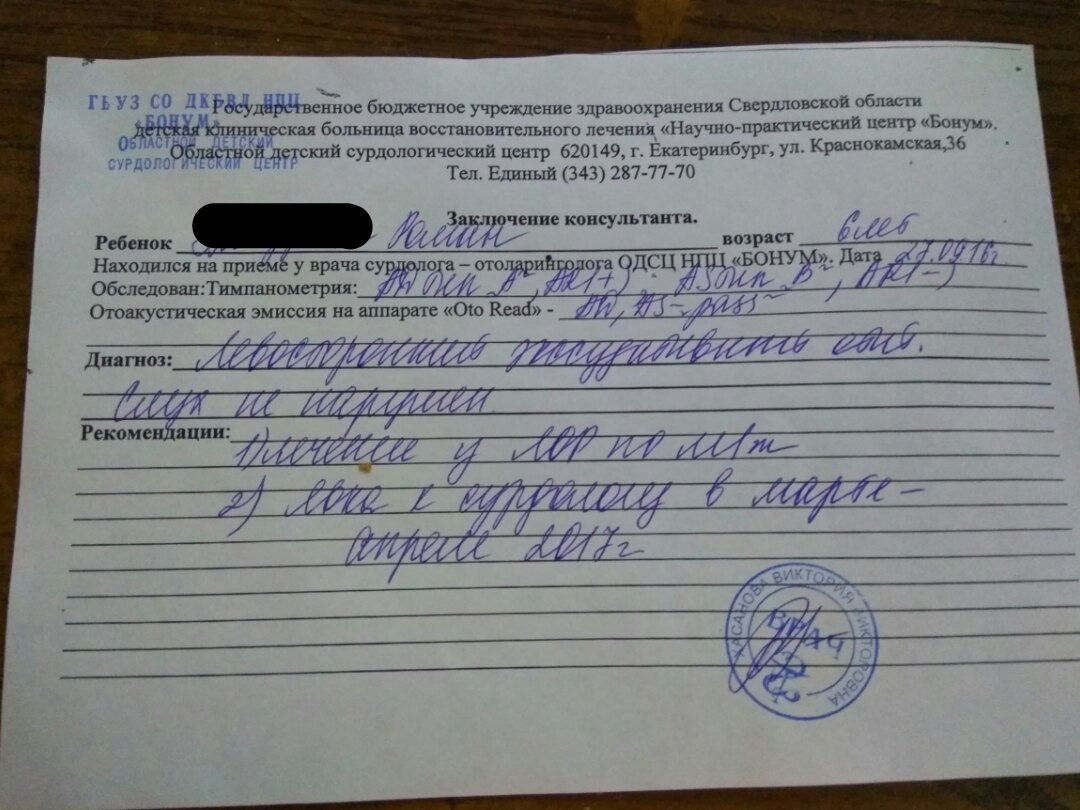 ГБУЗ СО ДКБВЛ НПЦ
«БОНУМ»
ОБЛАСТНОЙ ДЕТСКИЙ
СУРДОЛОГИЧЕСКИЙ ЦЕНТР
Государственное бюджетное учреждение здравоохранения Свердловской области
детская клиническая больница восстановительного лечения «Научно-практический центр «Бонум».
Областной детский сурдологический центр 620149, г. Екатеринбург, ул. Краснокамская,36
Тел. Единый (343) 287-77-70
Заключение консультанта.
Ребенок Роман возраст 6 лет
Находился на приеме у врача сурдолога – отоларинголога ОДСЦ НПЦ «БОНУМ». Дата 27.09.16г
Обследован:Тимпанометрия: AD тип A, AR(+) AS тип B, AR(-)
Отоакустическая эмиссия на аппарате «Oto Read» - AD, AS - pass
Диагноз: Левосторонний экссудативный отит.
Слух не нарушен.
Рекомендации:
1) лечение у ЛОР по м/ж
2) явка к сурдологу в марте-
апреле 2017г
ХАСАНОВА ВИКТОРИЯ ВИКТОРОВНА
ВРАЧ